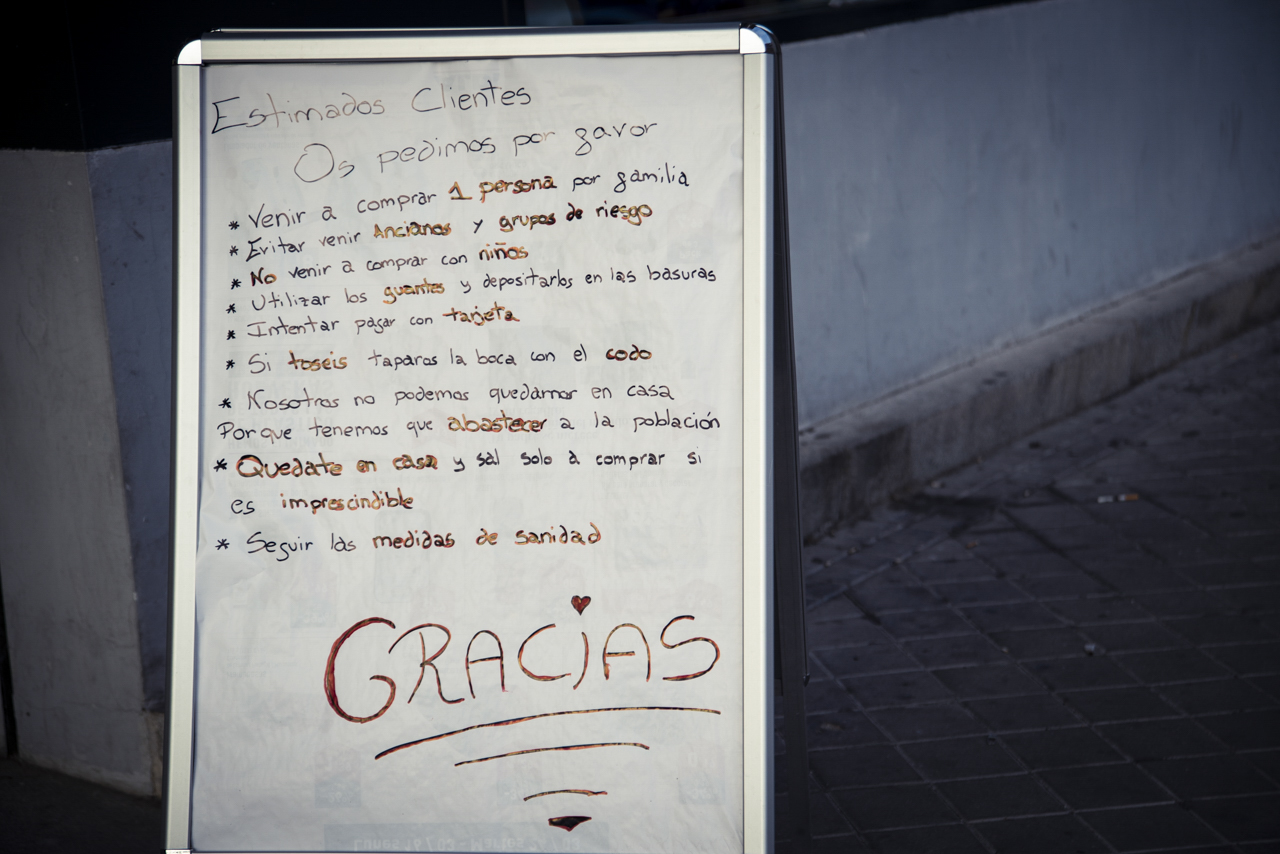 Estimados Clientes
Os pedimos por favor
* Venir a comprar 1 persona por familia
* Evitar venir Ancianos y grupos de riesgo
* No venir a comprar con niños
* Utilizar los guantes y depositarlos en las basuras
* Intentar pagar con tarjeta
* Si toseis taparos la boca con el codo
* Nosotros no podemos quedarnos en casa
Porque tenemos que abastecer a la población
* Quedate en casa y sal solo a comprar si
es imprescindible
* Seguir las medidas de sanidad
GRACiAS